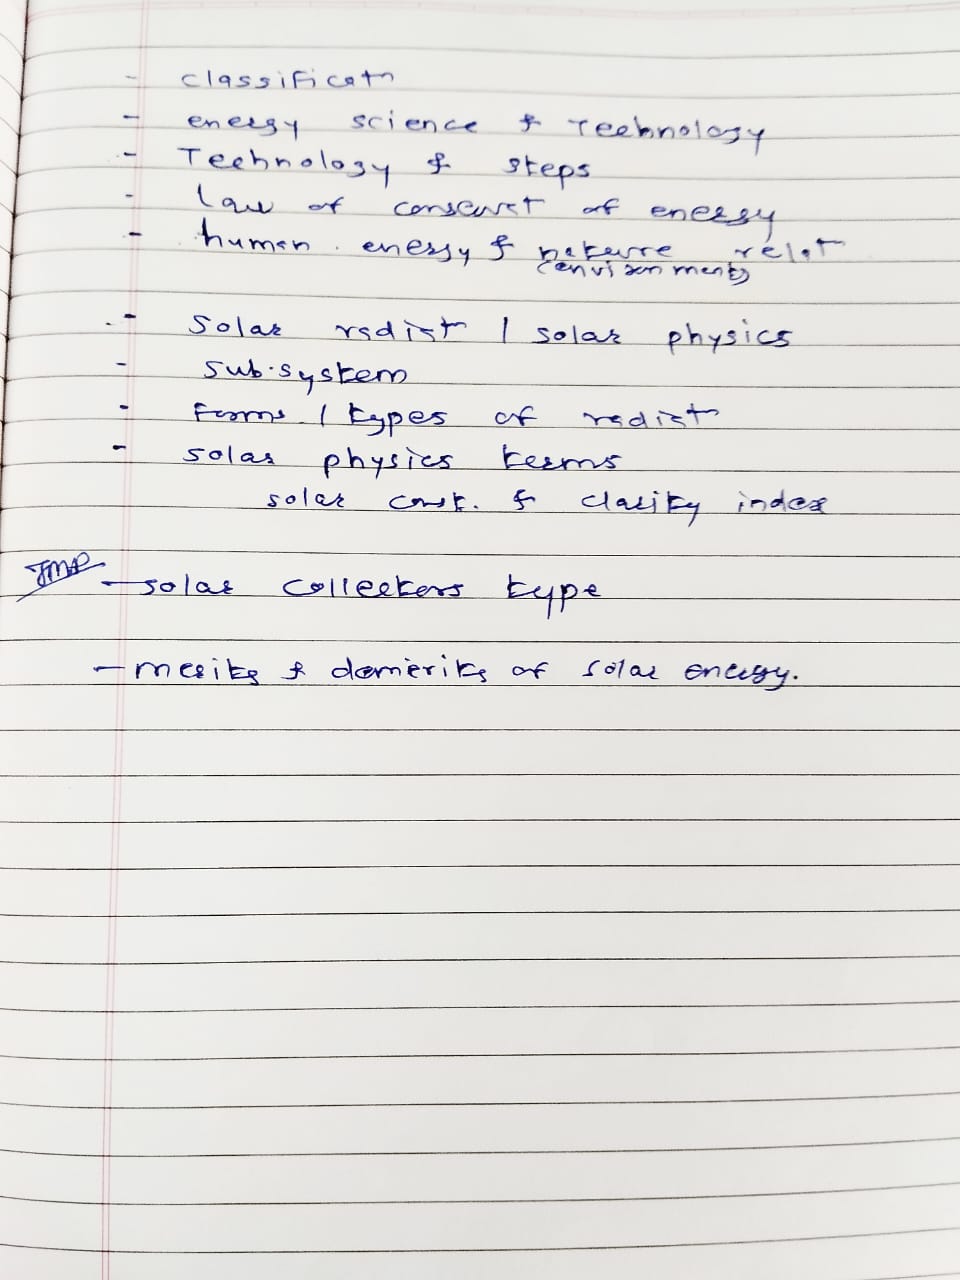 - classificatn
- energy science & Technology
- Technology & steps
- law of conservatn of energy
- human energy & nature relatn
(environment)
- Solar radiatn / solar physics
- sub.system
- Forms / types of radiatn
- solar physics terms
solar const. & clarity index
IMP - solar collectors type
- merits & demerits of solar energy.